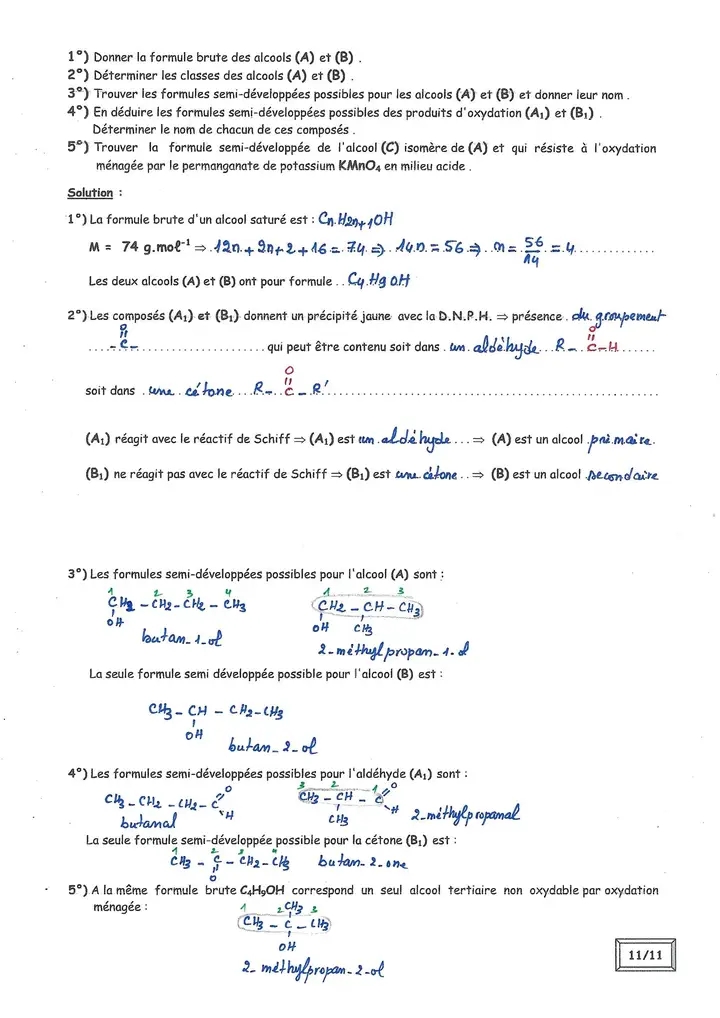 1°) Donner la formule brute des alcools (A) et (B) .
2°) Déterminer les classes des alcools (A) et (B) .
3°) Trouver les formules semi-développées possibles pour les alcools (A) et (B) et donner leur nom .
4°) En déduire les formules semi-développées possibles des produits d'oxydation (A₁) et (B₁) .
Déterminer le nom de chacun de ces composés .
5°) Trouver la formule semi-développée de l'alcool (C) isomère de (A) et qui résiste à l'oxydation
ménagée par le permanganate de potassium KMnO₄ en milieu acide .
Solution :
1°) La formule brute d'un alcool saturé est : CnH2n+1OH
M = 74 g.moℓ⁻¹ ⇒ 12n + 2n + 2 + 16 = 74 ⇒ 14n = 56 ⇒ n = 56/14 = 4
Les deux alcools (A) et (B) ont pour formule . . C4H9OH
2°) Les composés (A₁) et (B₁) donnent un précipité jaune avec la D.N.P.H. ⇒ présence . du groupement
O
-C- qui peut être contenu soit dans . un aldéhyde R - C-H
O
O
soit dans . une cétone R - C - R'
(A₁) réagit avec le réactif de Schiff ⇒ (A₁) est un aldéhyde ⇒ (A) est un alcool primaire
(B₁) ne réagit pas avec le réactif de Schiff ⇒ (B₁) est une cétone ⇒ (B) est un alcool secondaire
3°) Les formules semi-développées possibles pour l'alcool (A) sont :
1 2 3 4 1 2 3
CH2 - CH2 - CH2 - CH3 CH2 - CH - CH3
OH OH CH3
butan-1-ol 2-méthylpropan-1-ol
La seule formule semi développée possible pour l'alcool (B) est :
CH3 - CH - CH2 - CH3
OH
butan-2-ol
4°) Les formules semi-développées possibles pour l'aldéhyde (A₁) sont :
O 3 2 1 O
CH3 - CH2 - CH2 - C CH3 - CH - C
H CH3 H 2-méthylpropanal
butanal
La seule formule semi-développée possible pour la cétone (B₁) est :
1 2 3 4
CH3 - C - CH2 - CH3 butan-2-one
O
5°) A la même formule brute C₄H₉OH correspond un seul alcool tertiaire non oxydable par oxydation
ménagée :
1 2 CH3 3
CH3 - C - CH3
OH
2-méthylpropan-2-ol
11/11